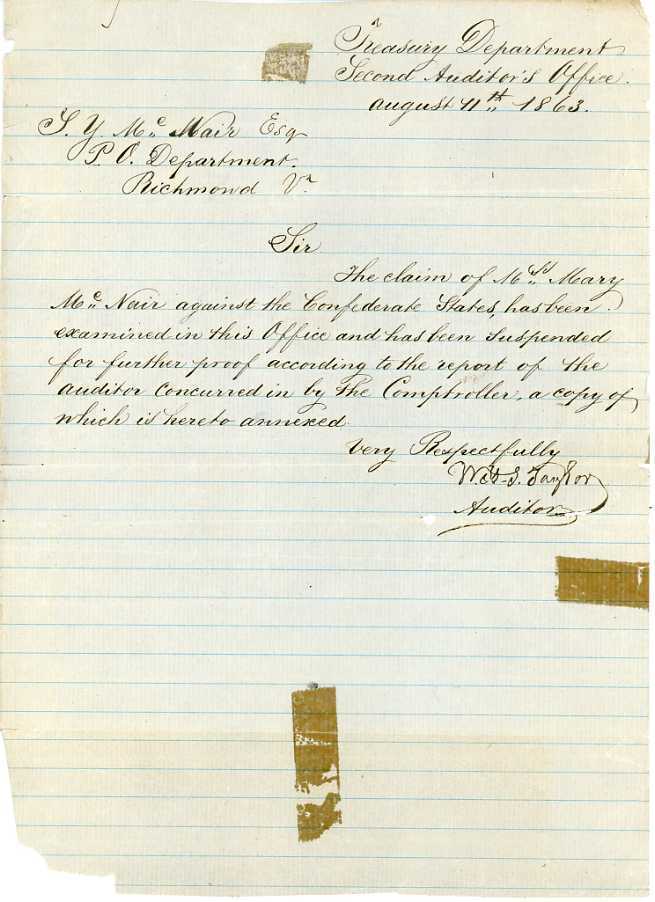 Treasury Department
Second Auditor's Office.
August 11th 1863.
S. Y. Mc Nair Esq
P. O. Department.
Richmond Va
Sir
The claim of Mrs Mary
Mc Nair against the Confederate States, has been
examined in this Office and has been suspended
for further proof according to the report of the
Auditor concurred in by the Comptroller, a copy of
which is hereto annexed.
Very Respectfully
Taylor
Auditor